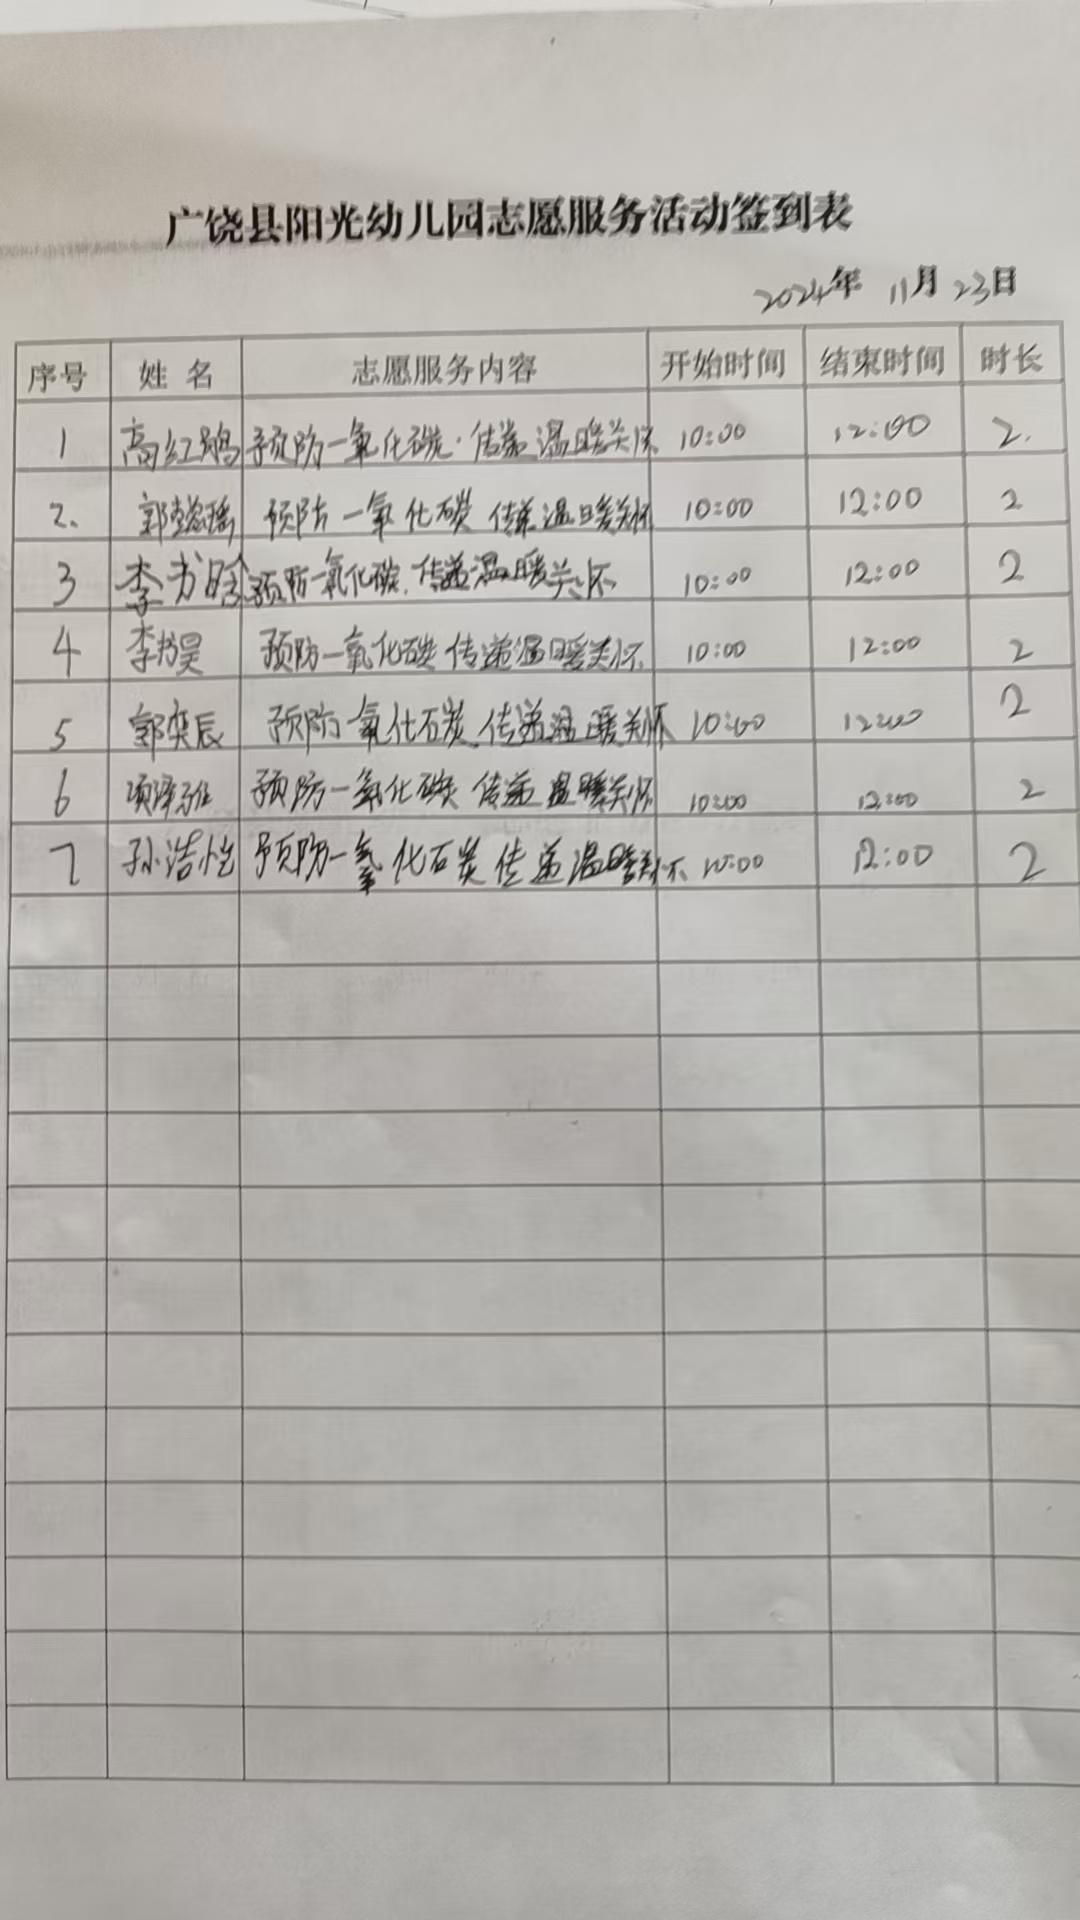 广饶县阳光幼儿园志愿服务活动签到表
2024年 11月 23日
序号 姓名 志愿服务内容 开始时间 结束时间 时长
1 高红鹃 预防一氧化碳·传递温暖关怀 10:00 12:00 2.
2. 郭懿瑶 预防一氧化碳 传递温暖关怀 10:00 12:00 2
3 李书晗 预防一氧化碳.传递温暖关怀 10:00 12:00 2
4 李书昊 预防一氧化碳 传递温暖关怀 10:00 12:00 2
5 郭奕辰 预防一氧化碳.传递温暖关怀 10:00 12:00 2
6 项泽雅 预防一氧化碳 传递温暖关怀 10:00 12:00 2
7 孙浩恺 预防一氧化碳 传递温暖关怀 10:00 12:00 2